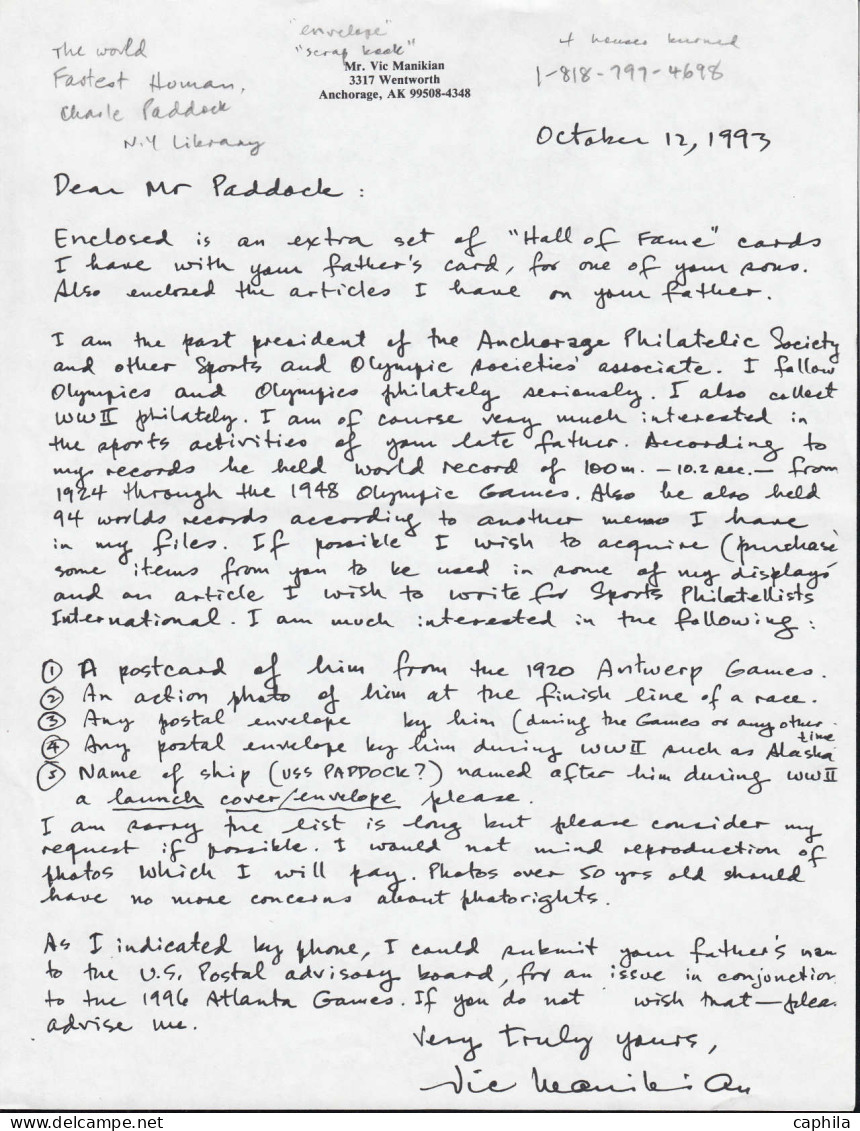 "envelope"
"scrap book"
The world
Fastest Human,
Charle Paddock
N.Y Library
Mr. Vic Manikian
3317 Wentworth
Anchorage, AK 99508-4348
houses burned
1-818-797-4698
October 12, 1993
Dear Mr Paddock :
Enclosed is an extra set of "Hall of Fame" cards
I have with your father's card, for one of your sons.
Also enclosed the articles I have on your father.
I am the past president of the Anchorage Philatelic Society
and other Sports and Olympic societies' associate. I follow
Olympics and Olympics philately seriously. I also collect
WWII philately. I am of course very much interested in
the sports activities of your late father. According to
my records he held world record of 100m. — 10.2 sec. — from
1924 through the 1948 Olympic Games. Also he also held
94 worlds records according to another memo I have
in my files. If possible I wish to acquire (purchase
some items from you to be used in some of my displays
and an article I wish to write for Sports Philatellists
International. I am much interested in the following :
① A postcard of him from the 1920 Antwerp Games.
② An action photo of him at the finish line of a race.
③ Any postal envelope by him (during the Games or any other
time
④ Any postal envelope by him during WWII such as Alaska
⑤ Name of ship (USS PADDOCK?) named after him during WWII
a launch cover/envelope please.
I am sorry the list is long but please consider my
request if possible. I would not mind reproduction of
photos which I will pay. Photos over 50 yrs old should
have no more concerns about photorights.
As I indicated by phone, I could submit your father's nam
to the U.S. Postal advisory board, for an issue in conjunction
to the 1996 Atlanta Games. If you do not wish that — plea
advise me.
Very truly yours,
Vic Manikian
www.delcampe.net
caphila